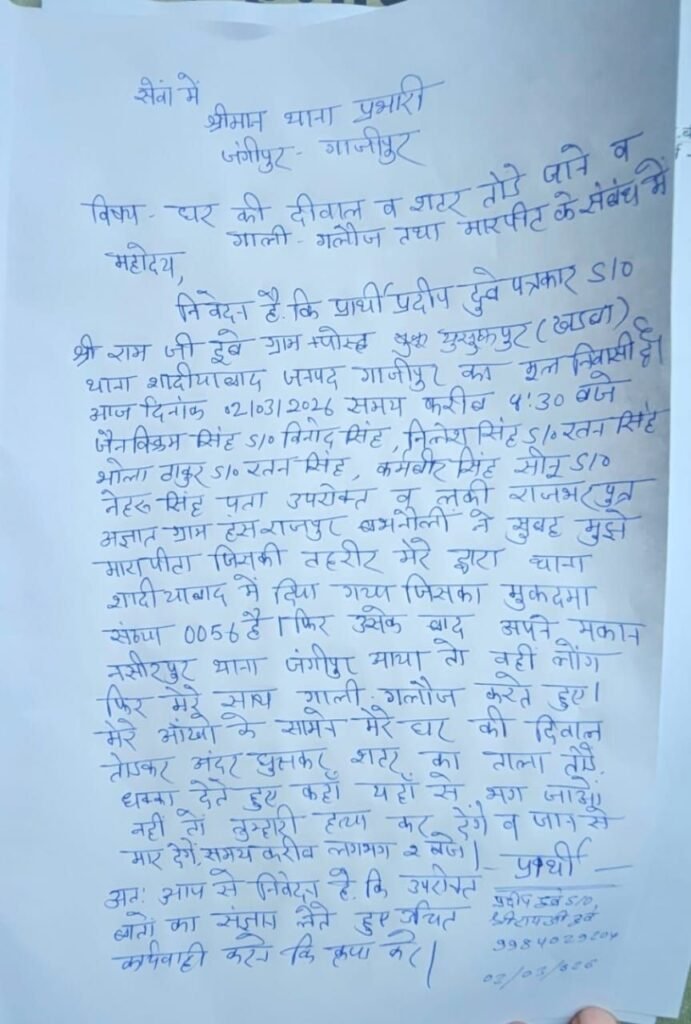 सेवा में
श्रीमान थाना प्रभारी
जंगीपुर - गाजीपुर
विषय - घर की दीवाल व शटर तोडे जाने व
गाली - गलौज तथा मारपीट के संबंध में
महोदय,
निवेदन है. कि प्रार्थी प्रदीप दुबे पत्रकार S/O
श्री राम जी दुबे ग्राम +पोस्ट युसुफपुर (खडवा)
थाना शादीयाबाद जनपद गाजीपुर का मूल निवासी है।
आज दिनांक 02/03/2026 समय करीब 4:30 बजे
जैनविक्रम सिंह S/O विनोद सिंह, निलेश सिंह S/O रतन सिंह
भोला ठाकुर S/O रतन सिंह, कर्मबीर सिंह सोनू S/O
नेहरू सिंह पता उपरोक्त व लकी राजभर पुत्र
अज्ञात ग्राम हसराजपुर बभनौली ने सुबह मुझे
मारापीटा जिसकी तहरीर मेरे द्वारा थाना
शादीयाबाद में दिया गया जिसका मुकदमा
संख्या 0056 है। फिर उसके बाद अपने मकान
नसीरपुर थाना जंगीपुर आया तो वही लोग
फिर मेरे साथ गाली-गलौज करते हुए।
मेरे आँखो के सामने मेरे घर की दिवाल
तोडकर अंदर घुसकर शटर का ताला तोडे.
धक्का देते हुए कहाँ यहाँ से भग जाओ
नहीं तो तुम्हारी हत्या कर देंगे व जान से
मार देंगे. समय करीब लगभग 2 बजे।
- प्रार्थी -
अत: आप से निवेदन है. कि उपरोक्त
बातो का संज्ञान लेते हुए उचित
कार्यवाही करने कि कृपा करे।
प्रदीप दुबे S/O,
श्री राम जी दुबे
9984029204
02/03/026